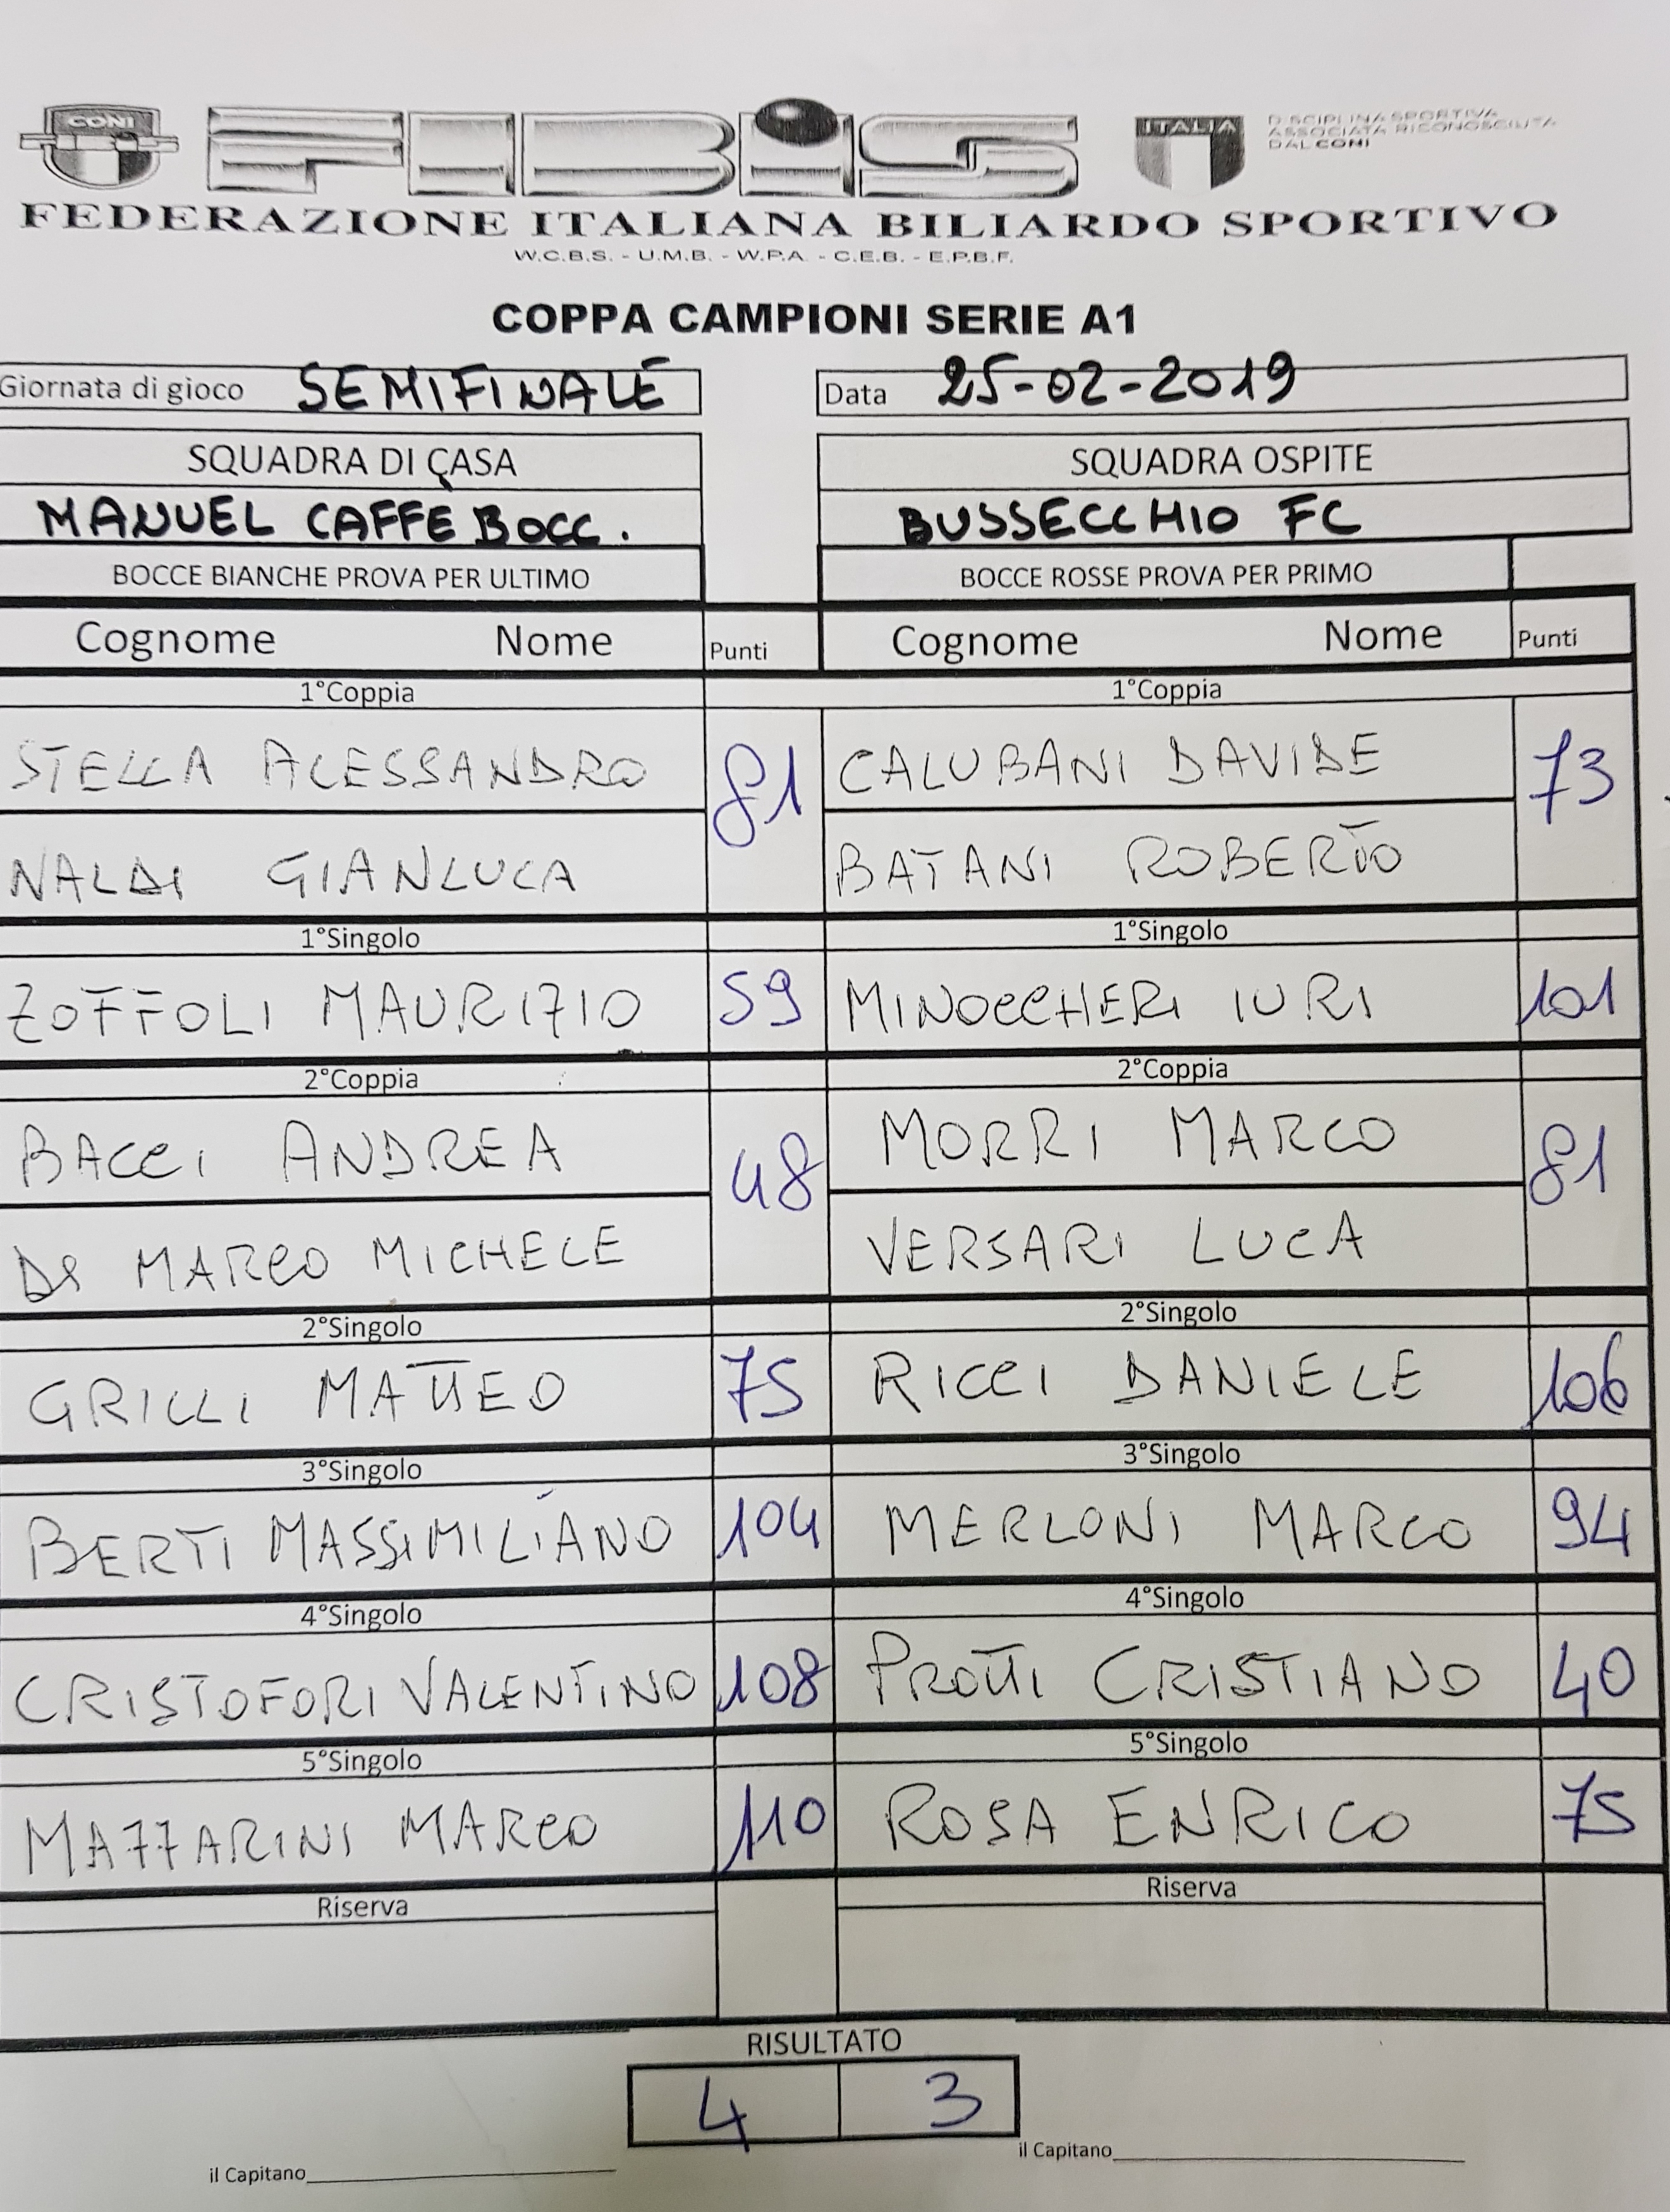 CONI
FIBiS
ITALIA
DISCIPLINA SPORTIVA
ASSOCIATA RICONOSCIUTA
DAL CONI
FEDERAZIONE ITALIANA BILIARDO SPORTIVO
W.C.B.S. - U.M.B. - W.P.A. - C.E.B. - E.P.B.F.
COPPA CAMPIONI SERIE A1
Giornata di gioco SEMIFINALE Data 25-02-2019
SQUADRA DI CASA SQUADRA OSPITE
MANUEL CAFFÈ BOCC. BUSSECCHIO FC
BOCCE BIANCHE PROVA PER ULTIMO BOCCE ROSSE PROVA PER PRIMO
Cognome Nome Punti Cognome Nome Punti
1°Coppia 1°Coppia
STELLA ALESSANDRO 81 CALUBANI DAVIDE 73
NALDI GIANLUCA BATANI ROBERTO
1°Singolo 1°Singolo
ZOFFOLI MAURIZIO 59 MINOCCHERI IURI 101
2°Coppia 2°Coppia
BACCI ANDREA 48 MORRI MARCO 81
DE MARCO MICHELE VERSARI LUCA
2°Singolo 2°Singolo
GRILLI MATTEO 75 RICCI DANIELE 106
3°Singolo 3°Singolo
BERTI MASSIMILIANO 104 MERLONI MARCO 94
4°Singolo 4°Singolo
CRISTOFORI VALENTINO 108 PROTTI CRISTIANO 40
5°Singolo 5°Singolo
MAZZARINI MARCO 110 ROSA ENRICO 75
Riserva Riserva
RISULTATO
4 3
il Capitano il Capitano